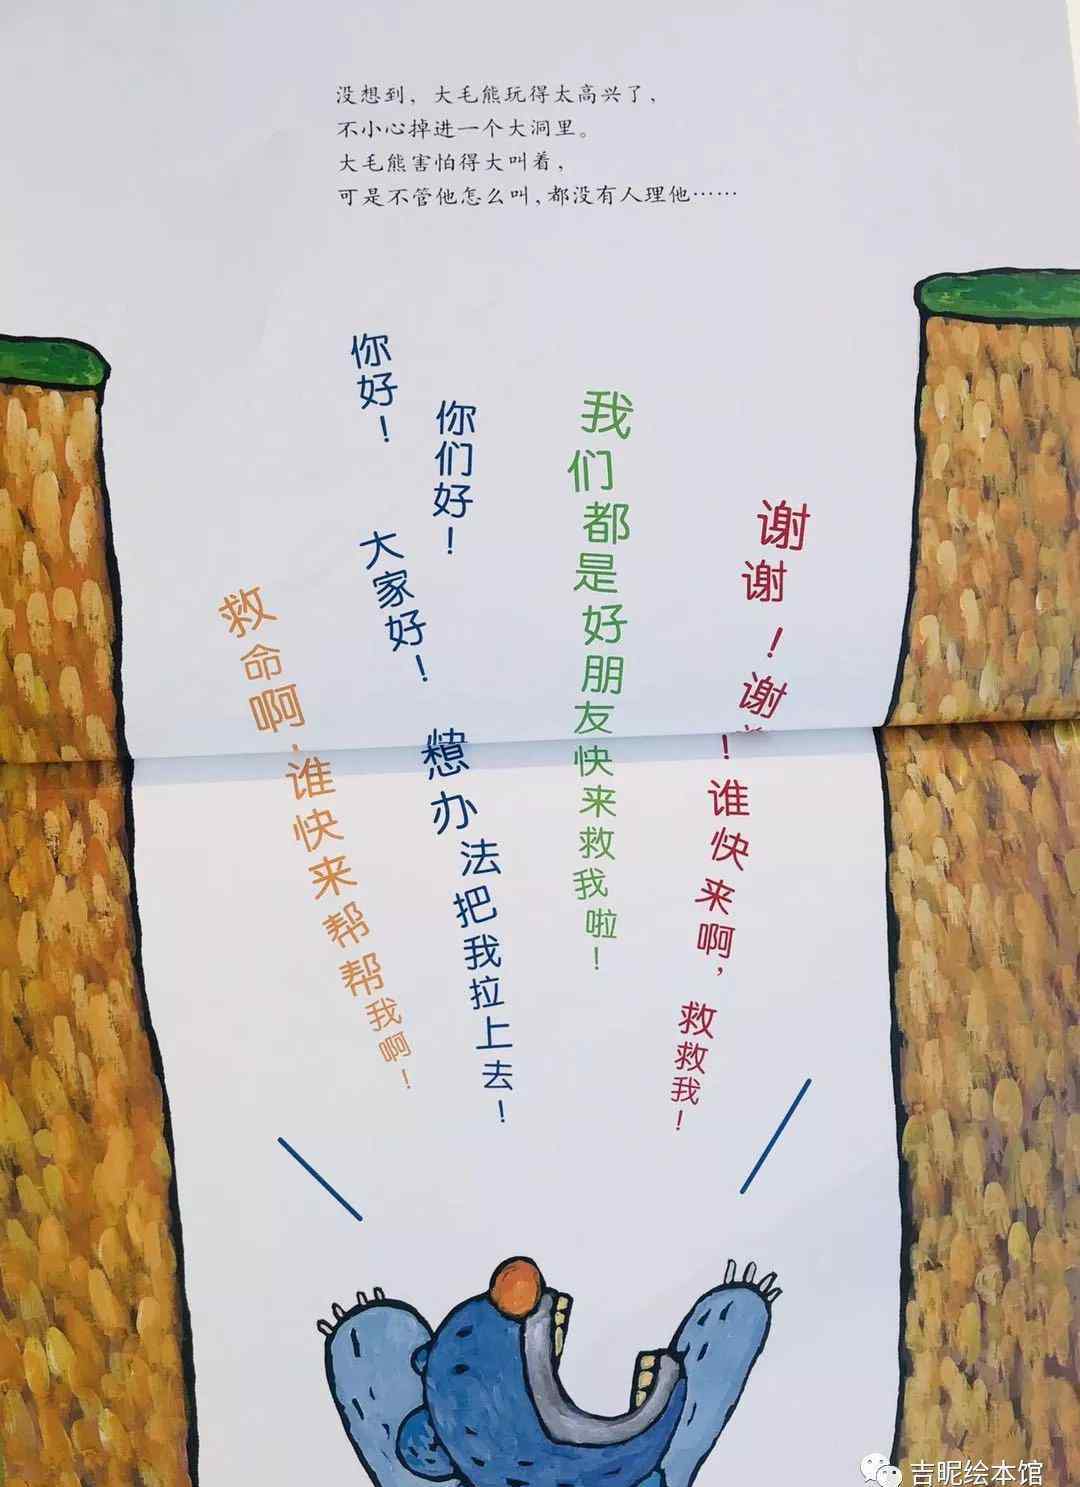 没想到，大毛熊玩得太高兴了，
不小心掉进一个大洞里。
大毛熊害怕得大叫着，
可是不管他怎么叫，都没有人理他……
救命啊，谁快来帮帮我啊！
你好！
你们好！
大家好！
想办法把我拉上去！
我们都是好朋友快来救我啦！
谢谢！谢！谁快来啊，救救我！
吉昵绘本馆